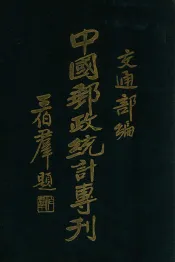 交通部編
中國郵政統計專刊
王伯羣題